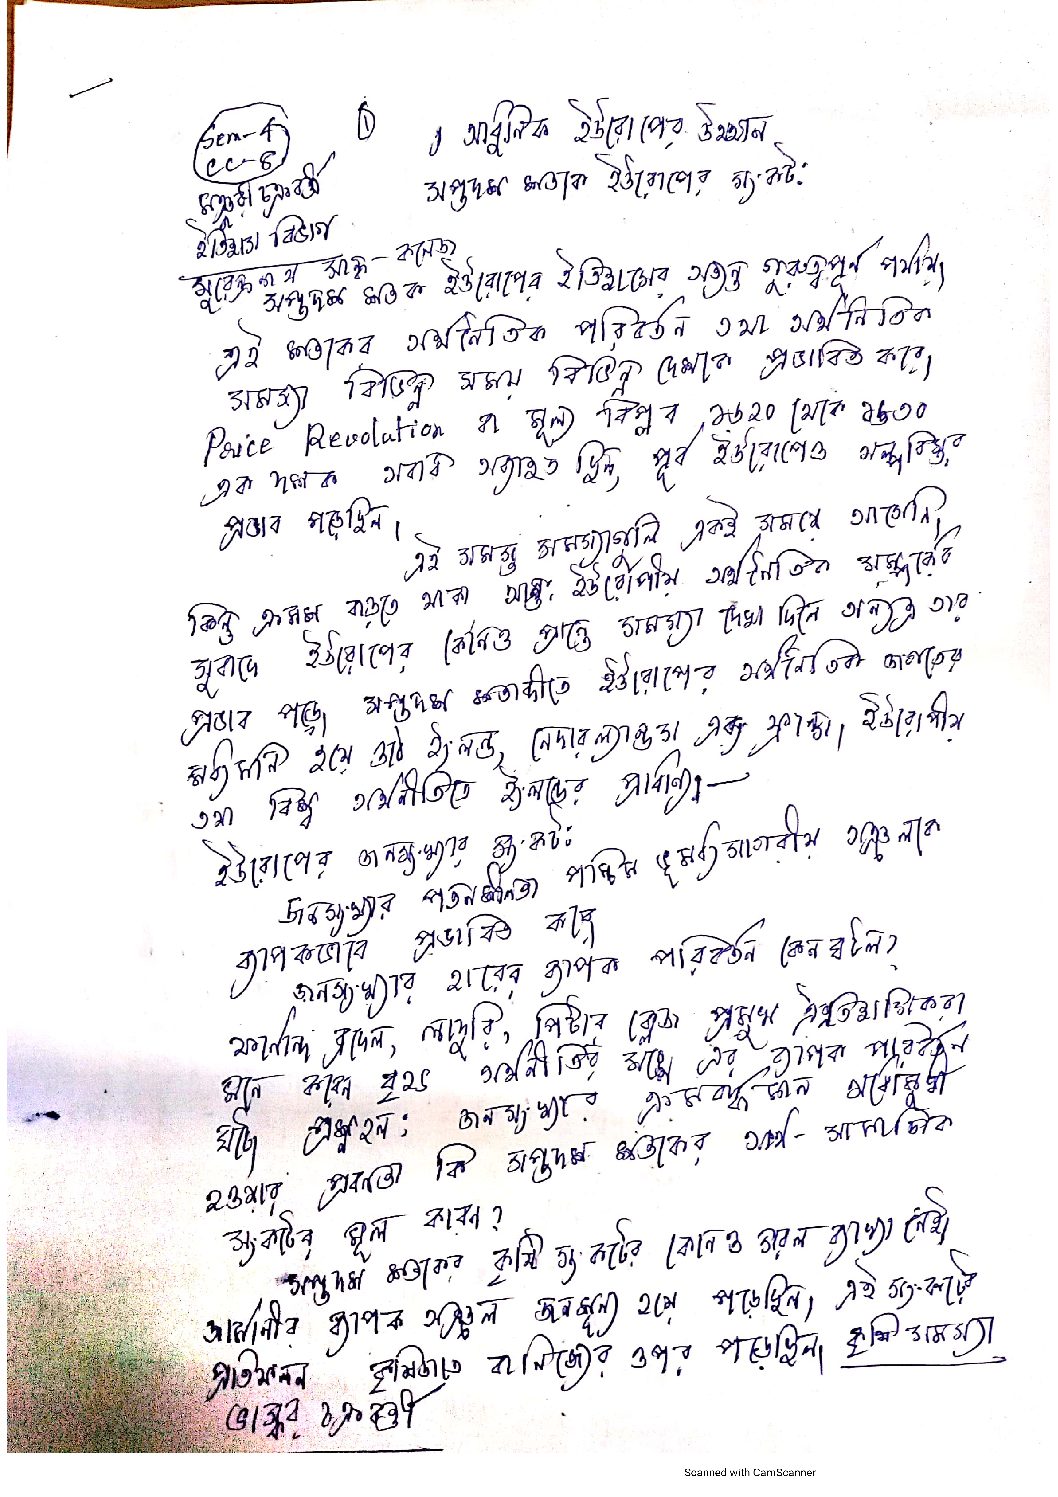 Sem-4
CC-8
①
। আধুনিক ইউরোপের উত্থান
সপ্তদশ শতকে ইউরোপের সংকট:
চক্রবর্তী
ইতিহাস বিভাগ
সুরেন্দ্রনাথ সান্ধ্য-কলেজ
সপ্তদশ শতক ইউরোপের ইতিহাসের অত্যন্ত গুরুত্বপূর্ণ পর্যায়।
এই শতকের অর্থনৈতিক পরিবর্তন তথা অর্থনৈতিক
সমস্যা বিভিন্ন সময় বিভিন্ন দেশকে প্রভাবিত করে।
Price Revolution বা মূল্য বিপ্লব ১৬২০ থেকে ১৬৩০
এক দশক অবধি অব্যাহত ছিল, পূর্ব ইউরোপেও অল্পবিস্তর
প্রভাব পড়েছিল।
এই সমস্ত সমস্যাগুলি একই সময়ে আসেনি,
কিন্তু ক্রমশ বাড়তে থাকা আন্তঃ ইউরোপীয় অর্থনৈতিক সম্পর্কের
সুবাদে ইউরোপের কোনও প্রান্তে সমস্যা দেখা দিলে অন্যত্র তার
প্রভাব পড়ে। সপ্তদশ শতাব্দীতে ইউরোপের অর্থনৈতিক জগতের
মধ্যমণি হয়ে ওঠে ইংলন্ড, নেদারল্যান্ডস এবং ফ্রান্স। ইউরোপীয়
তথা বিশ্ব অর্থনীতিতে ইংলন্ডের প্রাধান্য।—
ইউরোপের জনসংখ্যার সংকট:
জনসংখ্যার পতনশীলতা পশ্চিম ভূমধ্যসাগরীয় অঞ্চলকে
ব্যাপকভাবে প্রভাবিত করে
জনসংখ্যার হারের ব্যাপক পরিবর্তন কেন ঘটল?
ফার্নান্দ ব্রদেল, লাদুরি, পিটার ক্লেজ প্রমুখ ঐতিহাসিকেরা
মনে করেন বৃহৎ অর্থনীতির সঙ্গে এর ব্যাপক পরিবর্তন
ঘটে। প্রশ্ন হল: জনসংখ্যার ক্রমবর্দ্ধমান অধোমুখী
হওয়ার প্রবণতা কি সপ্তদশ শতকের আর্থ-সামাজিক
সংকটের মূল কারণ?
সপ্তদশ শতকের কৃষি সংকটের কোনও সরল ব্যাখ্যা নেই।
জার্মানীর ব্যাপক অঞ্চল জনশূন্য হয়ে পড়েছিল। এই সংকটের
প্রতিফলন কৃষিজাত বাণিজ্যের ওপর পড়েছিল। কৃষি সমস্যা
ভাস্কর চক্রবর্ত্তী
Scanned with CamScanner